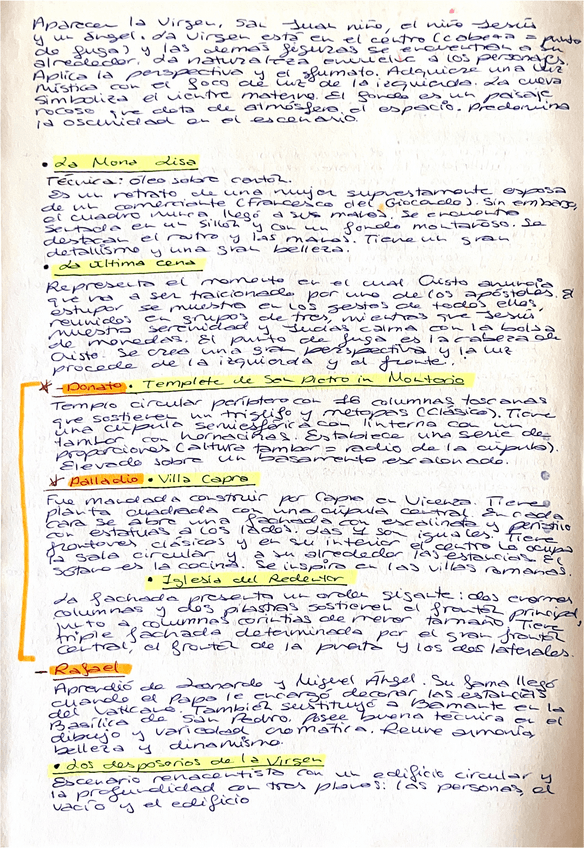 Aparecen la Virgen, San Juan niño, el niño Jesús
y un ángel. La Virgen está en el centro (cabeza = punto
de fuga) y las demás figuras se encuentran a su
alrededor. La naturaleza envuelve a los personajes.
Aplica la perspectiva y el sfumato. Adquiere una luz
mística con el foco de luz de la izquierda. La cueva
simboliza el vientre materno. El fondo es un paisaje
rocoso que dota de atmósfera el espacio. Predomina
la oscuridad en el escenario.
• La Mona Lisa
Técnica: óleo sobre cartón.
Es un retrato de una mujer supuestamente esposa
de un comerciante (Francesco del Giocondo). Sin embargo,
el cuadro nunca llegó a sus manos. Se encuentra
sentada en un sillón y con un fondo montañoso. Se
destacan el rostro y las manos. Tiene un gran
detallismo y una gran belleza.
• La última cena
Representa el momento en el cual Cristo anuncia
que va a ser traicionado por uno de los apóstoles. El
estupor se muestra en los gestos de todos ellos,
reunidos en grupos de tres mientras que Jesús
muestra serenidad y Judas calma con la bolsa
de monedas. El punto de fuga es la cabeza de
Cristo. Se crea una gran perspectiva y la luz
procede de la izquierda y el frente.
* - Donato • Templete de San Pietro in Montorio
Templo circular períptero con 16 columnas toscanas
que sostienen un triglifo y metopas (clásico). Tiene
una cúpula semiesférica con linterna con un
tambor con hornacinas. Establece una serie de
proporciones (altura tambor = radio de la cúpula).
Elevado sobre un basamento escalonado.
* Palladio • Villa Capra
Fue mandada construir por Capra en Vicenza. Tiene
planta cuadrada con una cúpula central. En cada
cara se abre una fachada con escalinata y peristilo
con estatuas a los lados. Las 4 son iguales. Tiene
frontones clásicos y en su interior el centro lo ocupa
la sala circular y a su alrededor las estancias. El
sótano es la cocina. Se inspira en las villas romanas.
• Iglesia del Redentor
La fachada presenta un orden gigante: dos enormes
columnas y dos pilastras sostienen el frontón principal,
junto a columnas corintias de menor tamaño. Tiene
triple fachada determinada por el gran frontón
central, el frontón de la puerta y los dos laterales.
- Rafael
Aprendió de Leonardo y Miguel Ángel. Su fama llegó
cuando el Papa le encargó decorar las estancias
del Vaticano. También sustituyó a Bramante en la
Basílica de San Pedro. Posee buena técnica en el
dibujo y variedad cromática. Reúne armonía
belleza y dinamismo.
• Los desposorios de la Virgen
Escenario renacentista con un edificio circular y
la profundidad con tres planos: las personas, el
vacío y el edificio